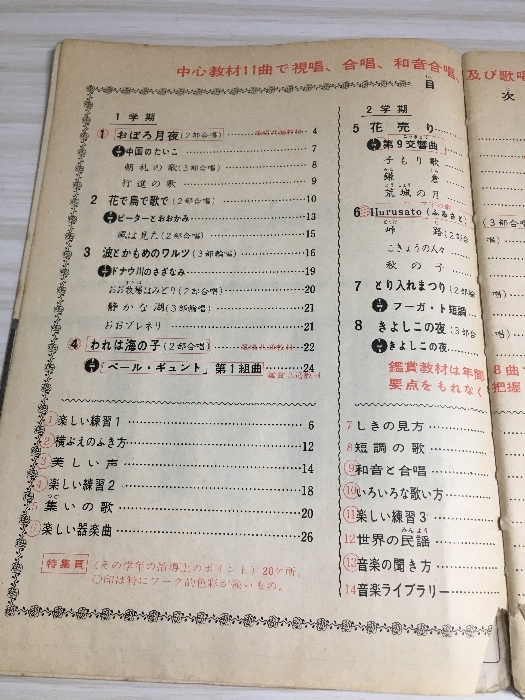 中心教材11曲で視唱、合唱、和音合唱、及び歌唱
目
次
1 学期
① おぼろ月夜(2部合唱) 歌唱共通教材 4
中国のたいこ 7
朝礼の歌(3部合唱) 8
行進の歌 9
2 花で鳥で歌で(2部合唱) 10
ピーターとおおかみ 13
風は見た(2部合唱) 15
3 波とかもめのワルツ(3部輪唱) 16
ドナウ川のさざなみ 19
おお牧場はみどり(2部合唱) 20
静かな湖(3部輪唱) 21
おおブレネリ 21
④ われは海の子(2部合唱) 歌唱共通教材 22
「ペール・ギュント」第1組曲 24
鑑賞共通教材
①楽しい練習1 6
②横ぶえのふき方 12
③美しい声 14
④楽しい練習2 18
5 集いの歌 20
⑥楽しい器楽曲 26
特集頁 (その学年の指導上のポイント) 20ケ所。
○印は特にワーク的色彩が強いもの。
2 学期
5 花売り
第9交響曲
子もり歌
鎌倉
荒城の月
6 Hurusato(ふるさと)
峠路(2部合
こきょうの人々
秋の子
7 とり入れまつり(2部輪
フーガ・ト短調
8 きよしこの夜(3部合
きよしこの夜
鑑賞教材は年間
8曲で
要点をもれなく
把握
7 しきの見方
8 短調の歌
⑨和音と合唱
⑩いろいろな歌い方
⑪楽しい練習3
12 世界の民謡
みんよう
⑬音楽の聞き方
14 音楽ライブラリー
(3部合唱)
唱)
唱)
唱)